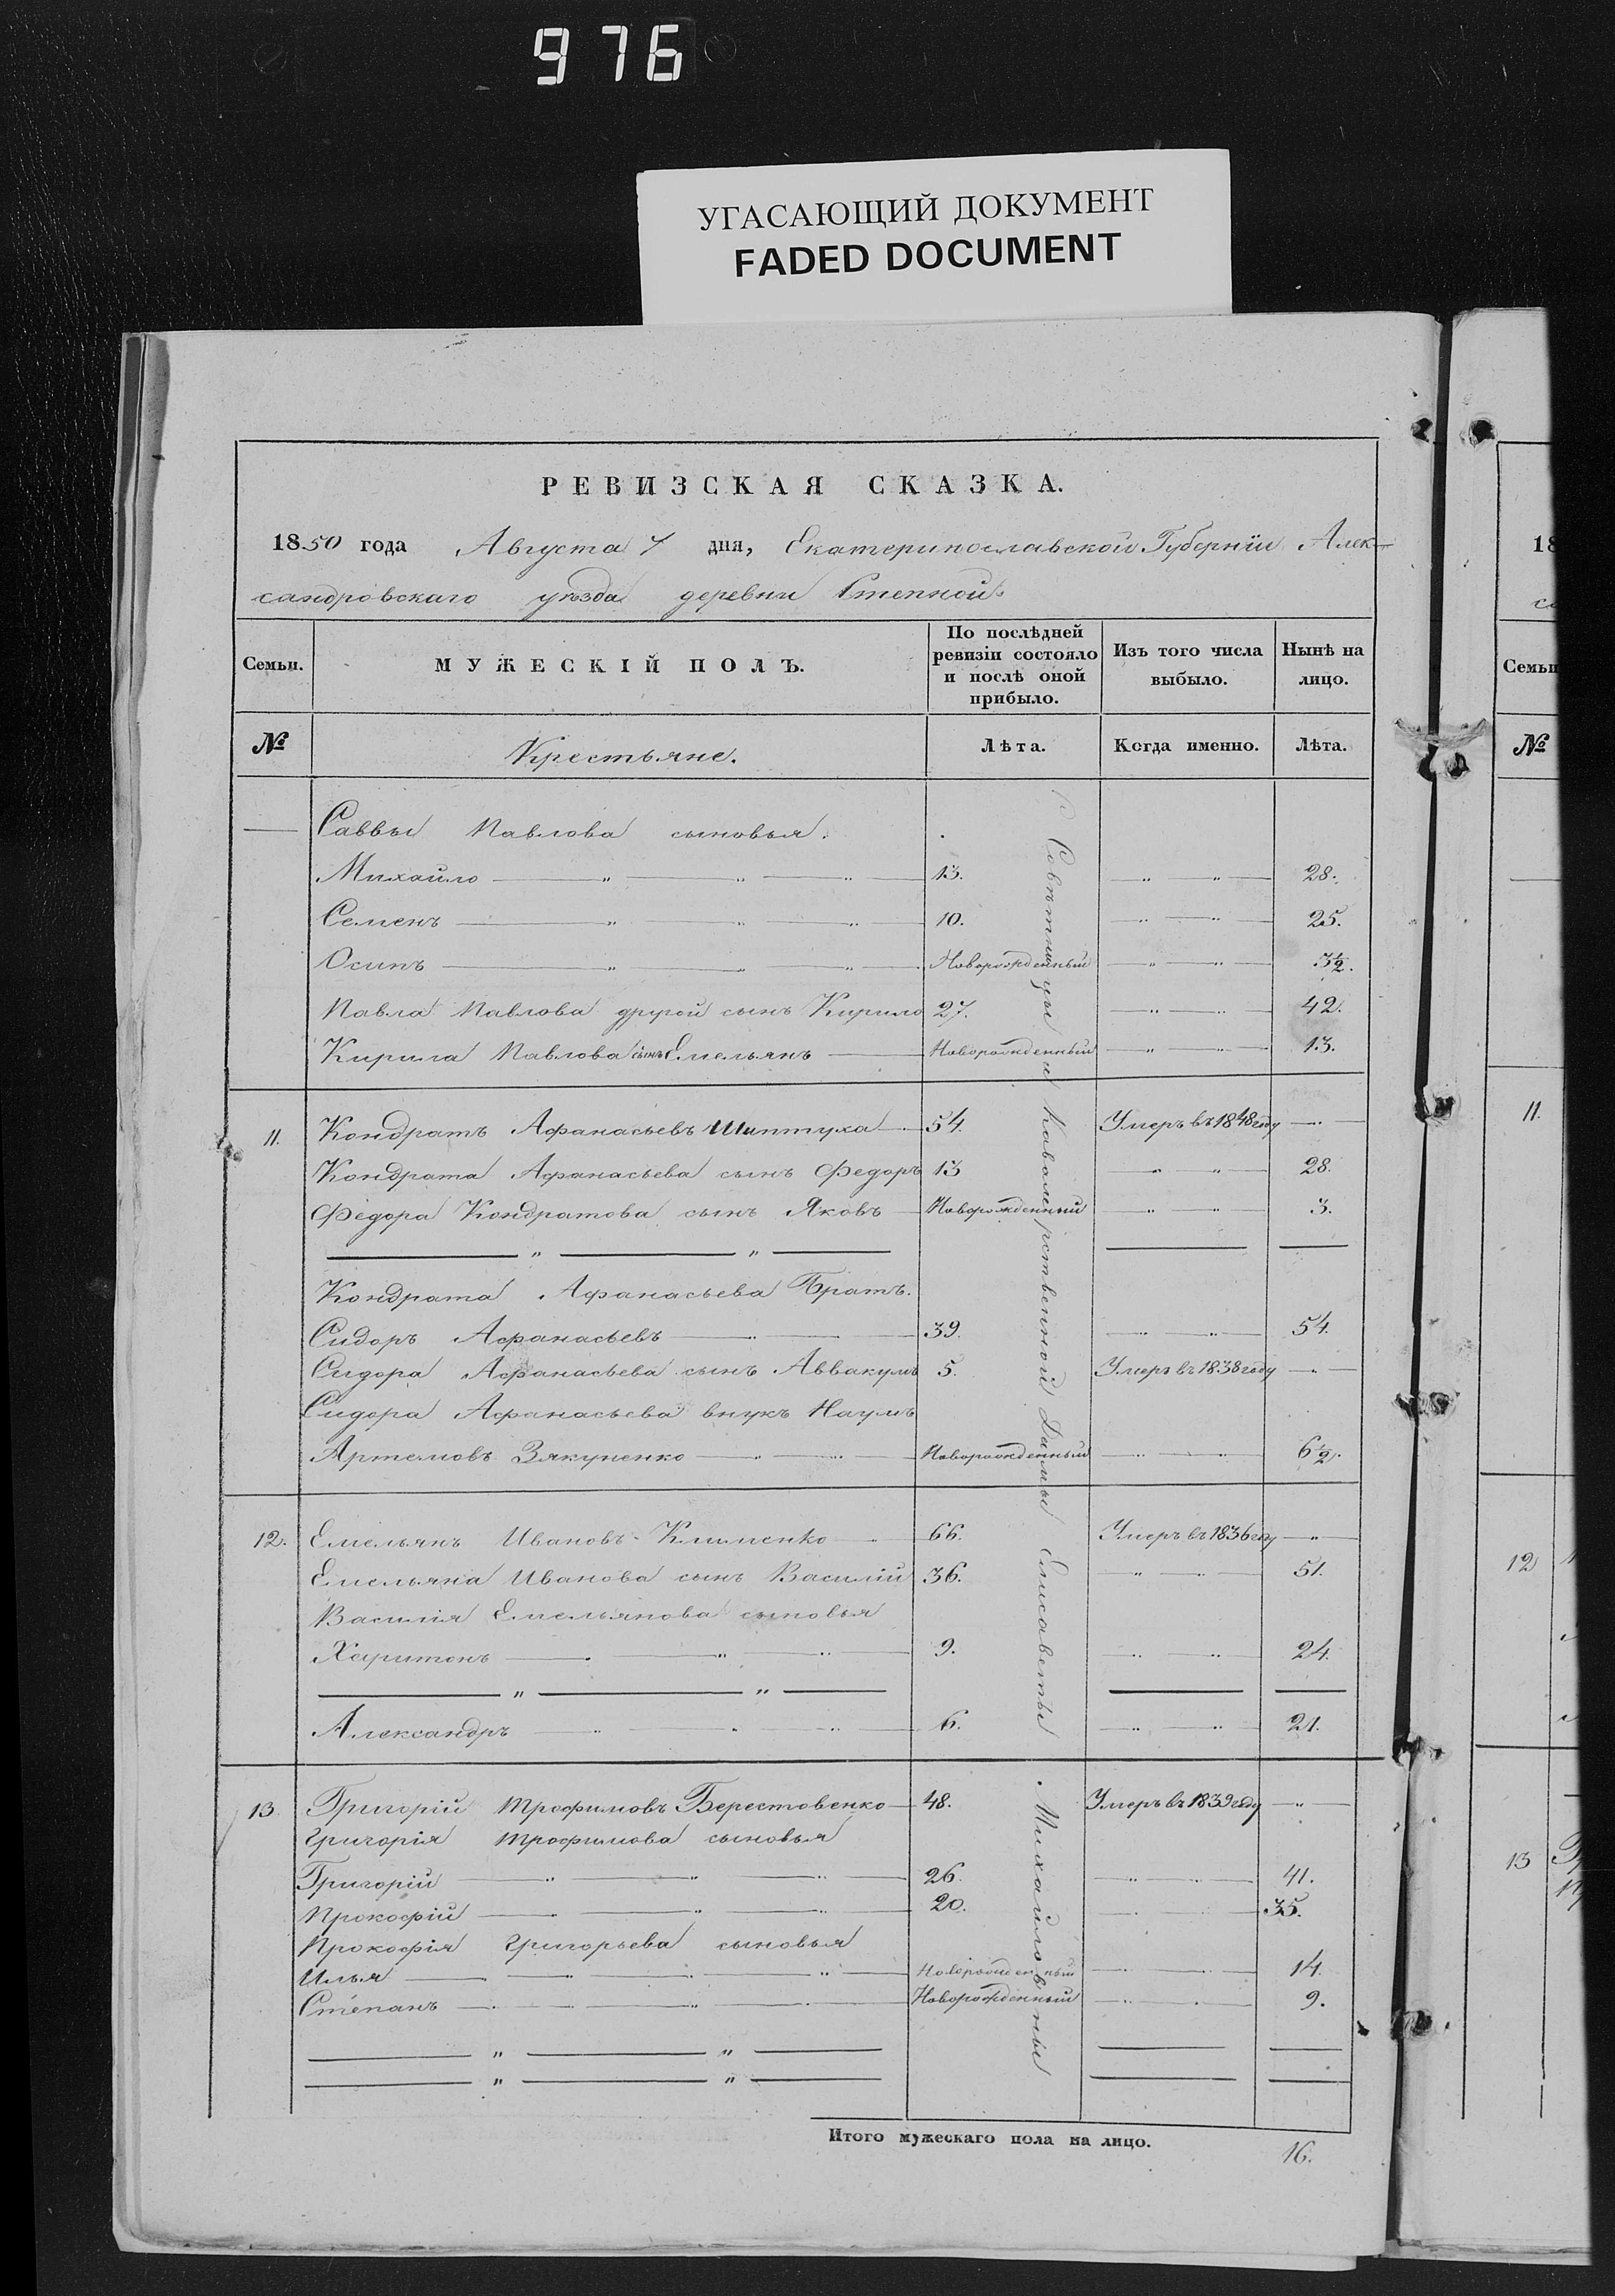 976
УГАСАЮЩИЙ ДОКУМЕНТ
FADED DOCUMENT
РЕВИЗСКАЯ СКАЗКА.
1850 года Августа 7 дня, Екатеринославской Губернiи Алек-
сандровскаго уѣзда деревни Степной
Семьи. МУЖЕСКІЙ ПОЛЪ. По послѣдней ревизіи состояло и послѣ оной прибыло. Изъ того числа выбыло. Нынѣ на лицо.
№ Крестьяне. Лѣта. Когда именно. Лѣта.
Саввы Павлова сыновья.
Михайло 13. 28.
Семенъ 10. 25.
Осипъ Новорожденный 3 1/2.
Павла Павлова другой сынъ Кирило 27. 42.
Кирила Павлова сынъ Емельянъ Новорожденный 13.
11. Кондратъ Афанасьевъ Шиптуха 54. Умеръ въ 1848 году
Кондрата Афанасьева сынъ Федоръ 13 28.
Федора Кондратова сынъ Яковъ Новорожденный 3.
Кондрата Афанасьева Братъ.
Сидоръ Афанасьевъ 39. 54.
Сидора Афанасьева сынъ Аввакумъ 5. Умеръ въ 1838 году
Сидора Афанасьева внукъ Наумъ
Артемовъ Зякуненко Новорожденный 6 1/2.
12. Емельянъ Ивановъ Клименко 66. Умеръ въ 1836 году
Емельяна Иванова сынъ Василій 36. 51.
Василія Емельянова сыновья
Харитонъ 9. 24.
Александръ 6. 21.
13. Григорій Трофимовъ Берестовенко 48. Умеръ въ 1839 году
Григорія Трофимова сыновья
Григорій 26. 41.
Прокофій 20. 35.
Прокофія Григорьева сыновья
Илья Новорожденный 14.
Степанъ Новорожденный 9.
Итого мужескаго пола на лицо. 16.
Совѣтницы и Кавалерственной Дамы Елисаветы Михайловны
18
Семьи
№
11.
12
13